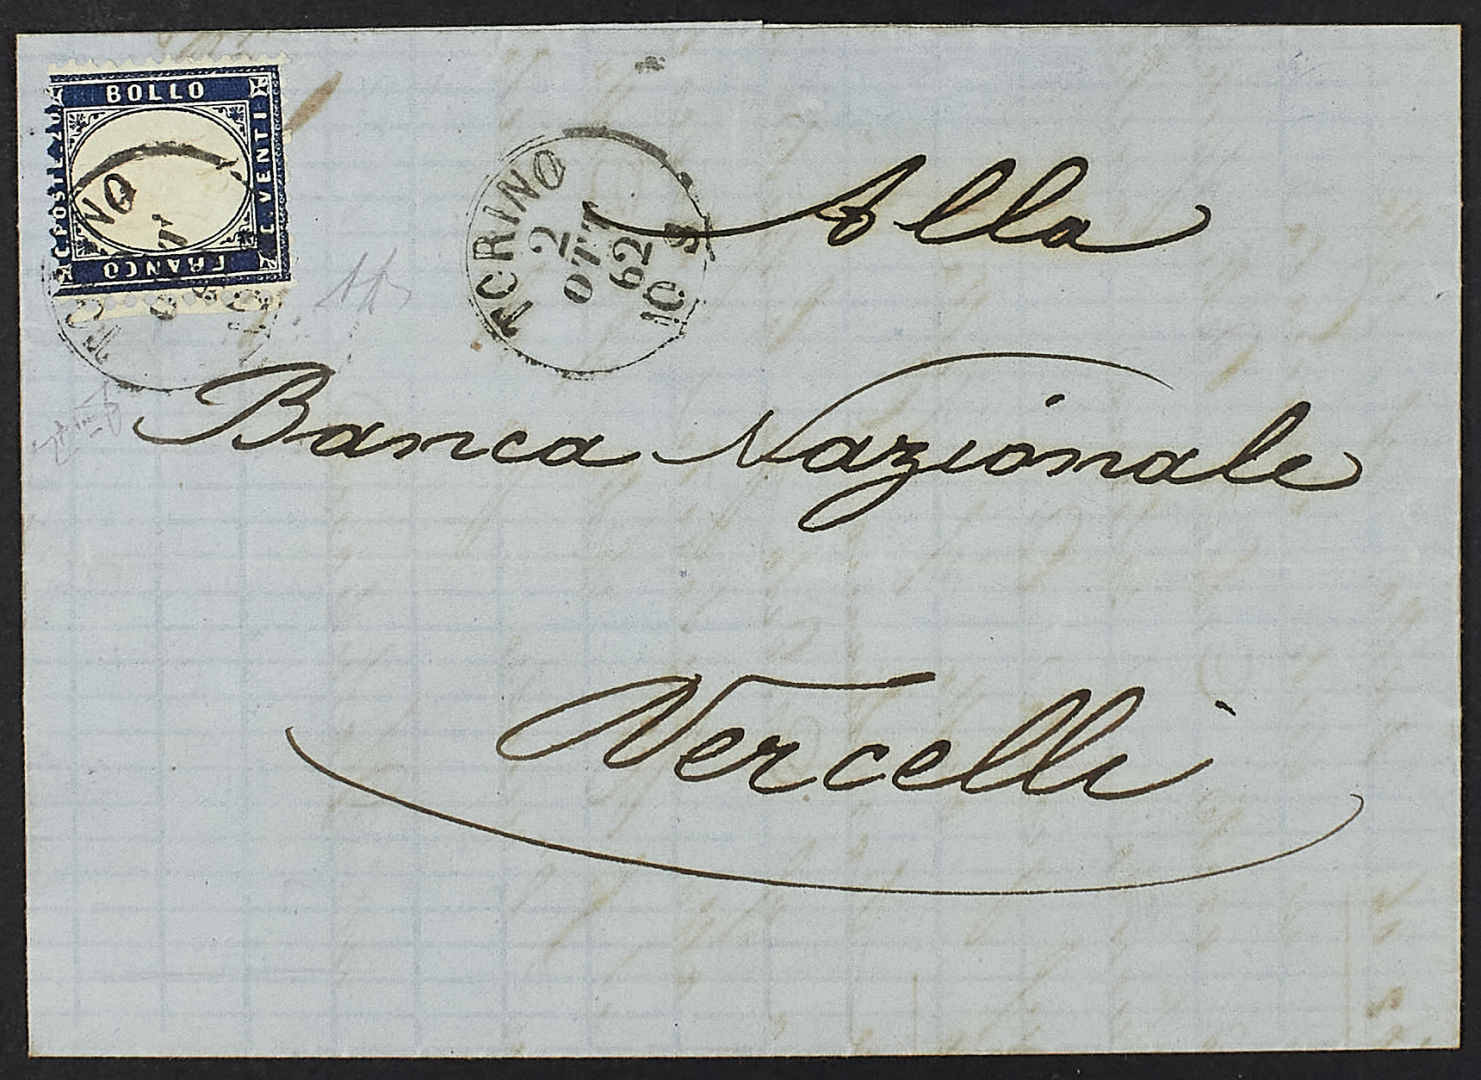 BOLLO
C. POSTALE
C. VENTI
FRANCO
TORINO
2
OTT
62
10 S
Alla
Banca Nazionale
Vercelli